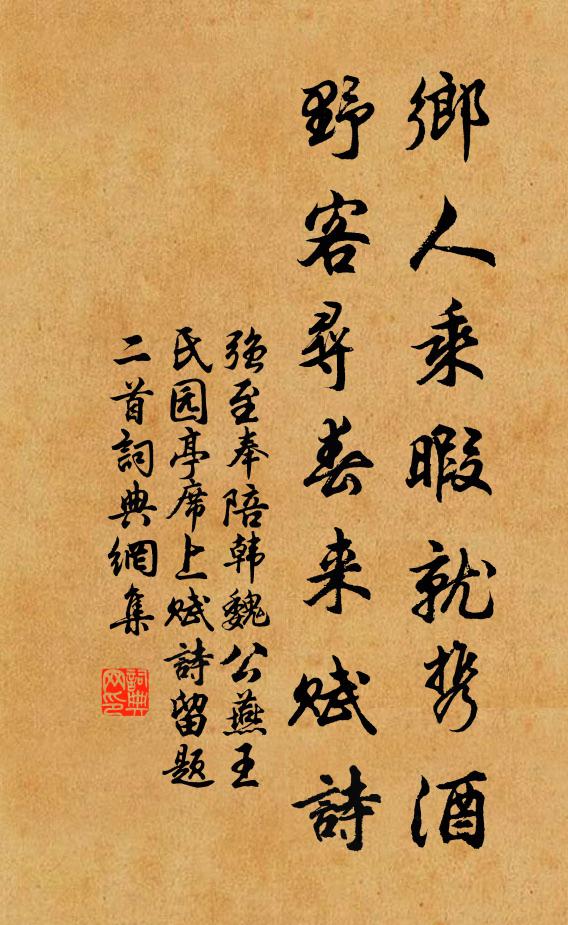 鄉人乘暇就携酒
野客尋春来賦詩
強至奉陪韩魏公燕王
氏园亭席上賦詩留题
二首詞典網集
詞典网印